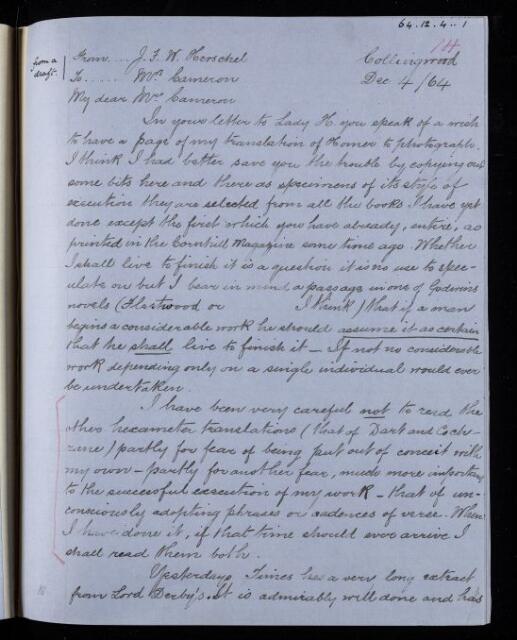 64.12.4..1
14
from a
draft.
From... J. F. W. Herschel
Collingwood
To...... Mrs Cameron
Dec 4/64
My dear Mrs Cameron
In your letter to Lady H. you speak of a wish
to have a page of my translation of Homer to photograph.
I think I had better save you the trouble by copying out
some bits here and there as specimens of its style of
execution they are selected from all the books I have yet
done except the first which you have already, entire, as
printed in the Cornhill Magazine some time ago. Whether
I shall live to finish it is a question it is no use to spec-
ulate on but I bear in mind a passage in one of Godwins
novels (Fleetwood or I think) that if a man
begins a considerable work he should assume it as certain
that he shall live to finish it — If not no considerable
work depending only on a single individual would ever
be undertaken.
I have been very careful not to read the
other hexameter translations (that of Dart and Coch-
rane) partly for fear of being put out of conceit with
my own – partly for another fear, much more important
to the successful execution of my work – that of un-
consciously adopting phrases or cadences of verse. When
I have done it, if that time should ever arrive I
shall read them both.
Yesterdays Times has a very long extract
from Lord Derby's. It is admirably well done and has